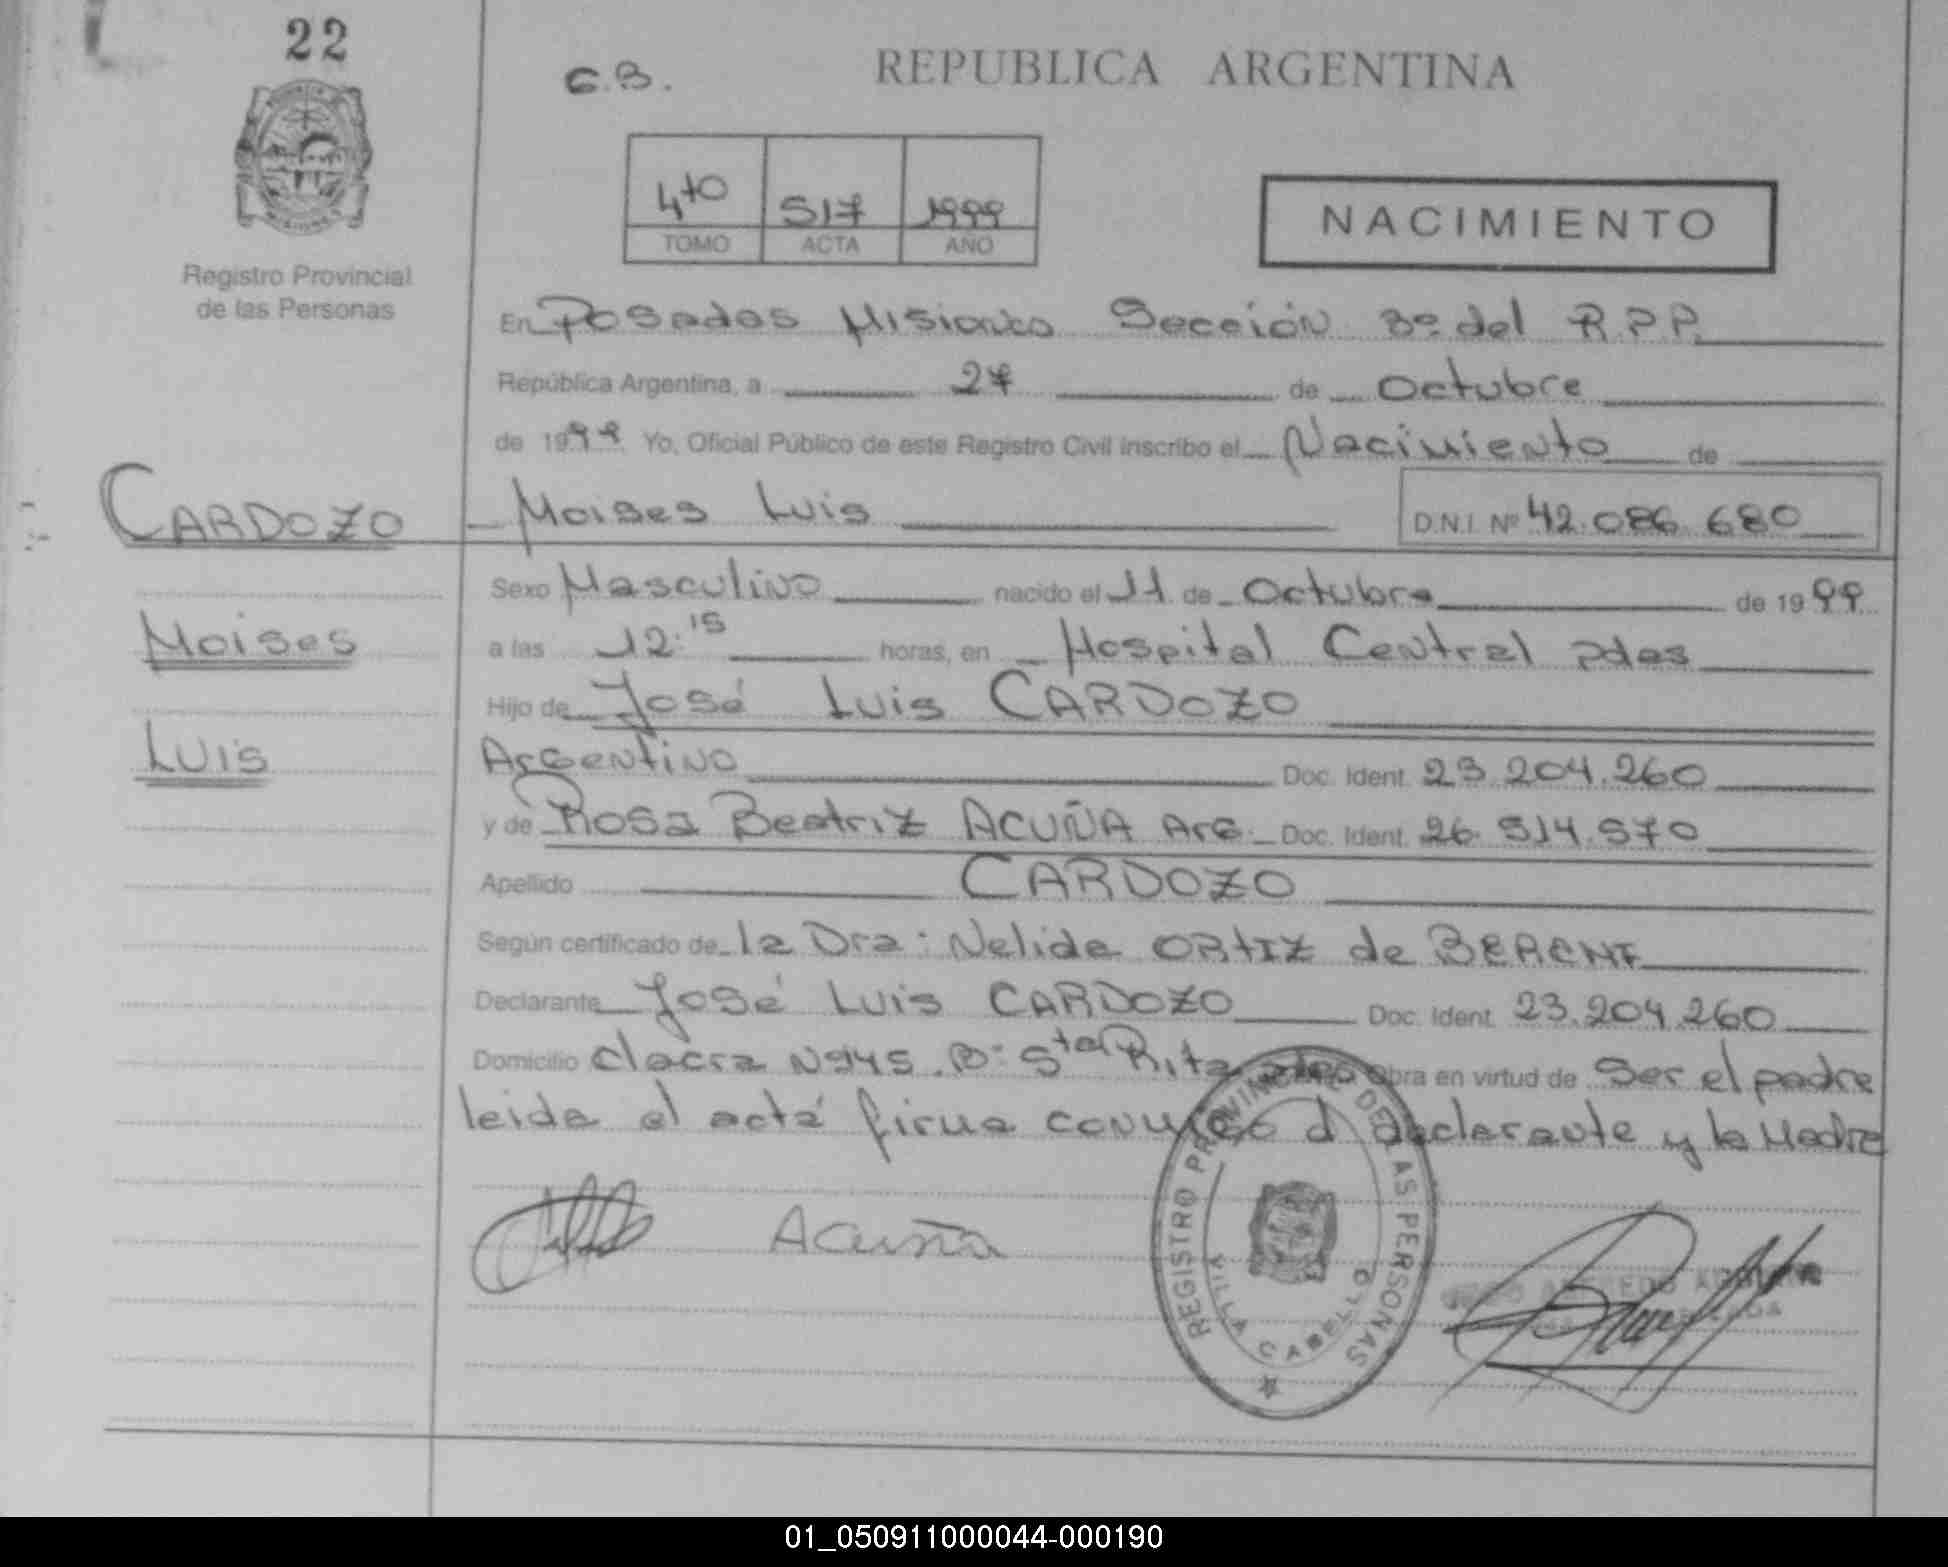 22
G.B.
REPUBLICA ARGENTINA
4to 517 1999
TOMO ACTA AÑO
NACIMIENTO
Registro Provincial
de las Personas
En Posadas Misiones Sección 3º del R.P.P.
República Argentina, a 27 de Octubre
de 1999 Yo, Oficial Público de este Registro Civil inscribo el Nacimiento de
CARDOZO Moises Luis D.N.I. Nº 42.086.680
Sexo Masculino nacido el 11 de Octubre de 1999
Moises
a las 12:15 horas, en Hospital Central pdas
Hijo de José Luis CARDOZO
Luis
Argentino Doc. Ident. 23.204.260
y de Rosa Beatriz ACUÑA Arg. Doc. Ident. 26.514.570
Apellido CARDOZO
Según certificado de la Dra: Nelida ORTIZ de
Declarante José Luis CARDOZO Doc. Ident. 23.204.260
Domicilio Chacra Nº 145. Bº: Sta Rita obra en virtud de Ser el padre
leida el acta firma conmigo el declarante y la Madre
Acuña
REGISTRO PROVINCIAL DE LAS PERSONAS
VILLA CABELLO
01_050911000044-000190